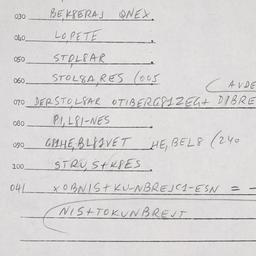 030 BEK8ERAJ QNEX.
040 LOPETE
050 STOL8AR
060 STOL8A,RES (005
(AVDE
070 DERSTOL8AR OTIBERG81ZEG+ D8BRE
080 PI,L81-NES
090 HE,BEL8 (240
100 STRU,S+K8ES
041 XOBNIS+KU-NBREJC1-ESN = -
NIS+TOKUNBREJT